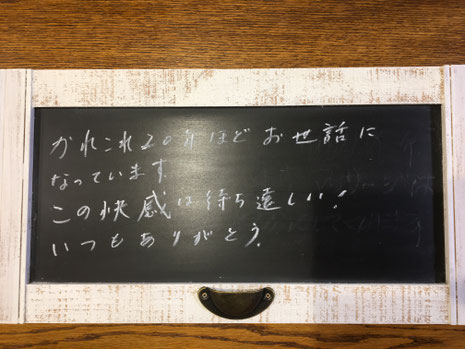 かれこれ20年ほど お世話に
なっています.
この快感は待ち遠しい!
いつもありがとう.